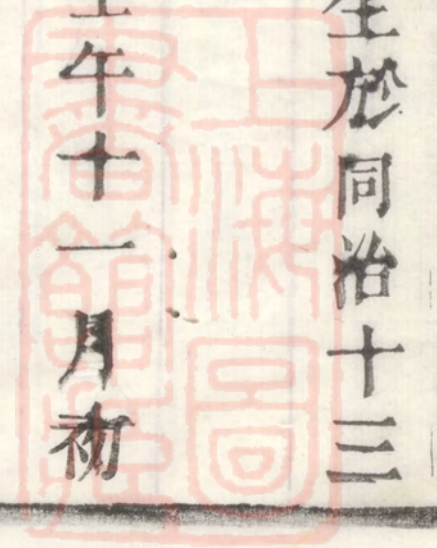 生於同治十三
午十一月初
上海圖書館藏